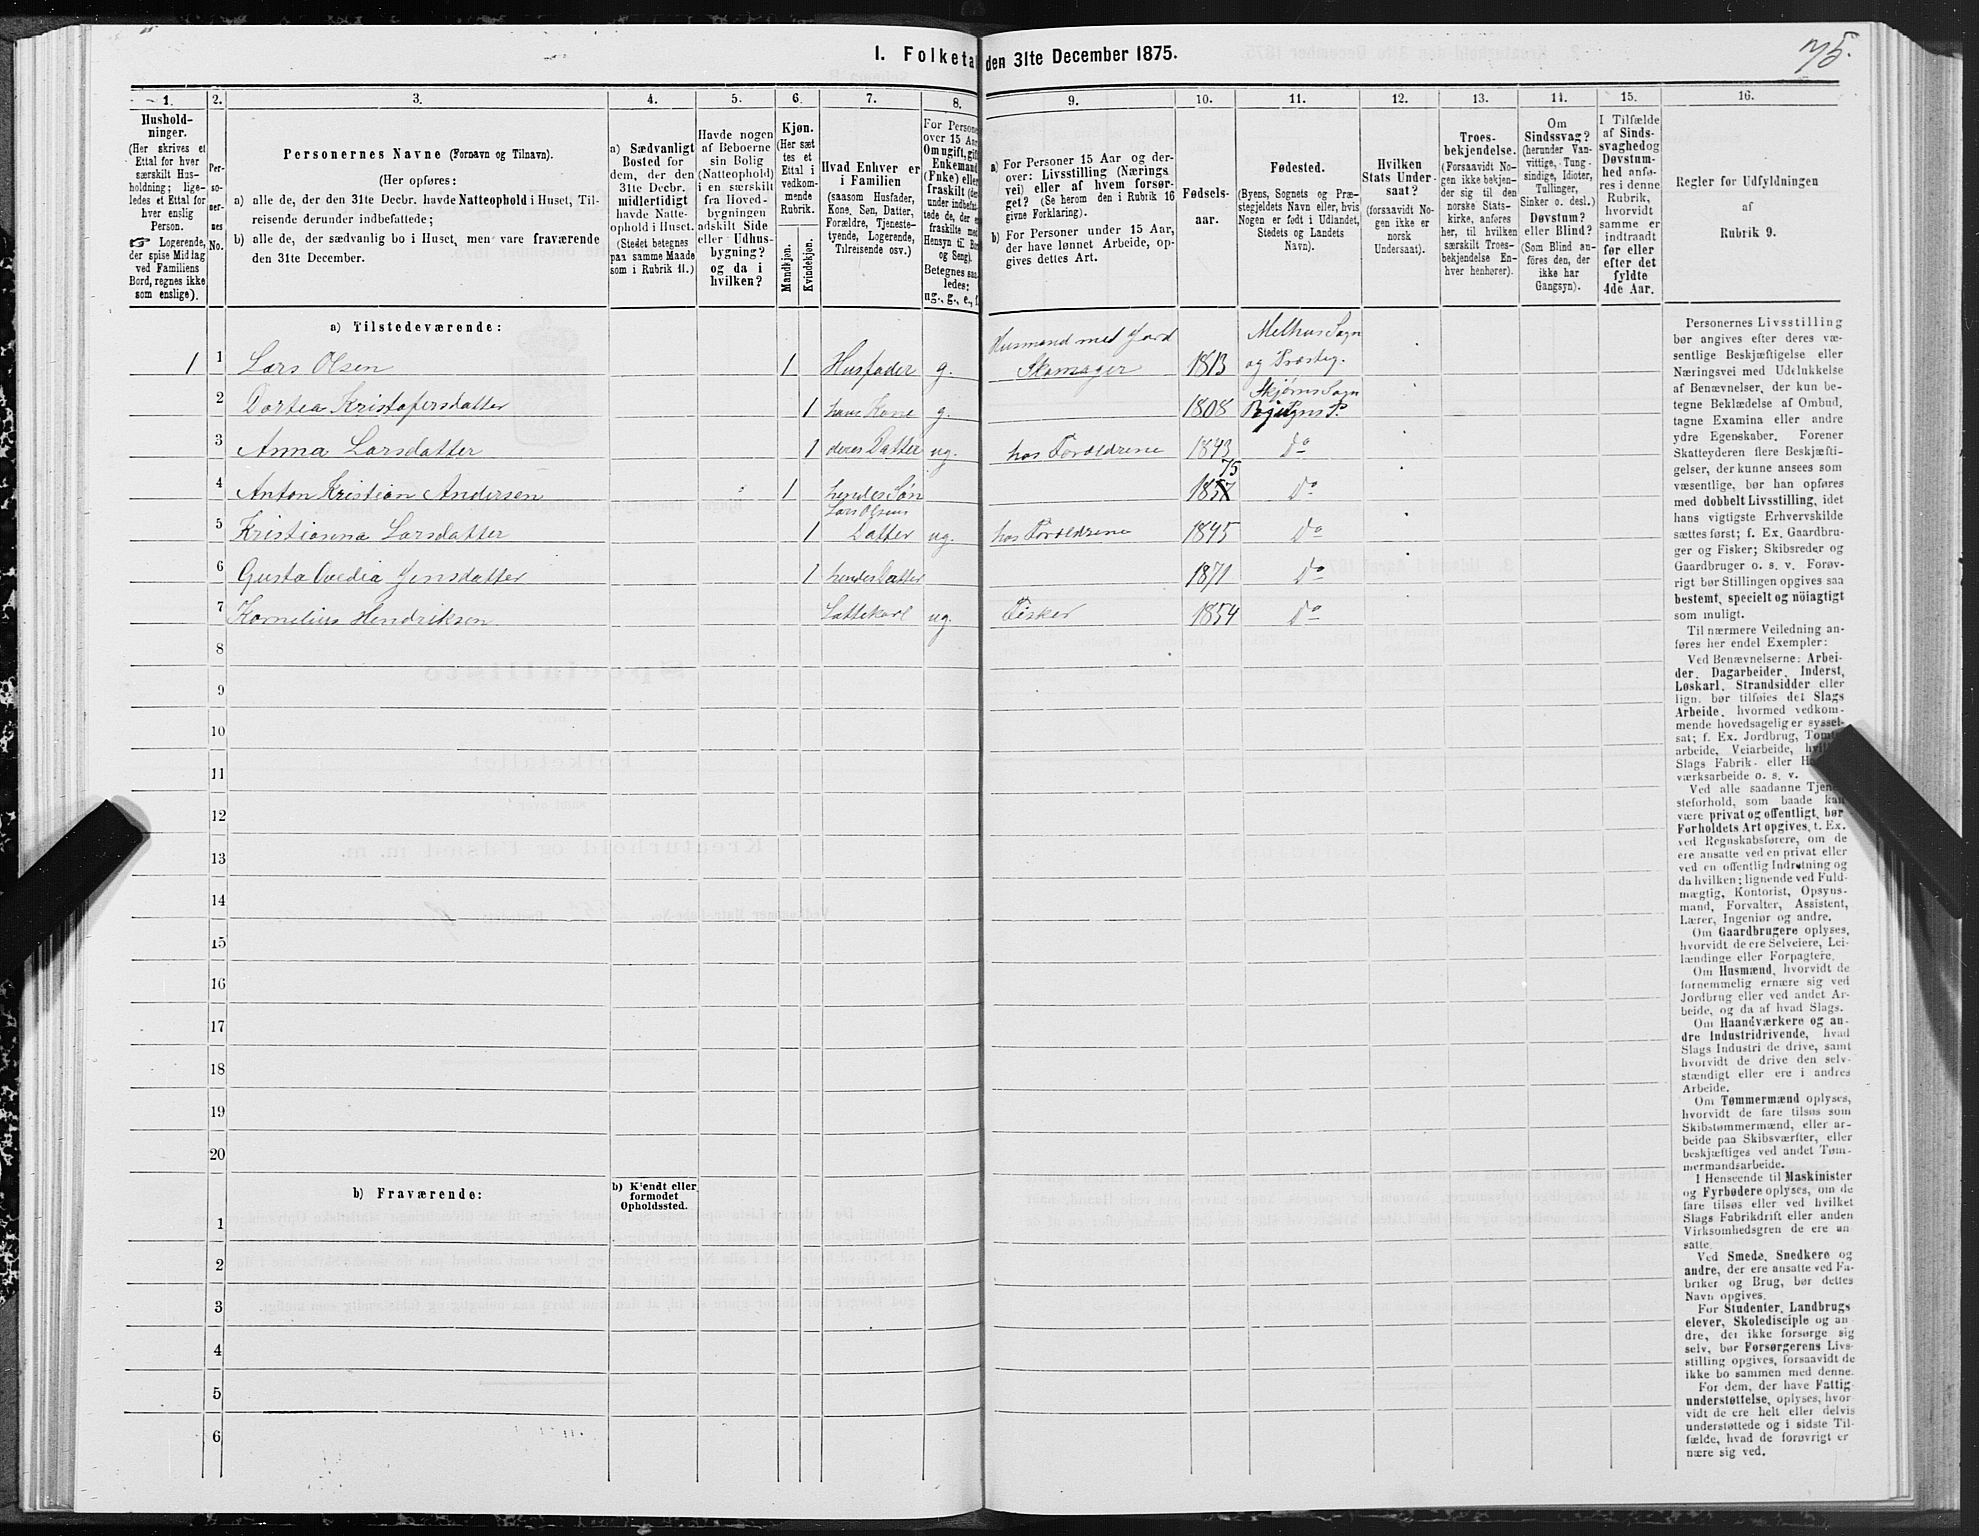 75.
I. Folketal den 31te December 1875.
1. 2. 3. 4. 5. 6. 7. 8. 9. 10. 11. 12. 13. 14. 15. 16.
Hushold-
ninger.
(Her skrives et
Ettal for hver
særskilt Hus-
holdning; lige-
ledes et Ettal for
hver enslig
Person.
☞ Logerende,
der spise Middag
ved Familiens
Bord, regnes ikke
som enslige).
Per-
so-
ner-
nes
No.
Personernes Navne (Fornavn og Tilnavn).
(Her opføres:
a) alle de, der den 31te Decbr. havde Natteophold i Huset, Til-
reisende derunder indbefattede;
b) alle de, der sædvanlig bo i Huset, men vare fraværende
den 31te December.
a) Sædvanligt
Bosted for
dem, der den
31te Decbr.
midlertidigt
havde Natte-
ophold i Huset.
(Stedet betegnes
paa samme Maade
som i Rubrik 11.)
Havde nogen
af Beboerne
sin Bolig
(Natteophold)
i en særskilt
fra Hoved-
bygningen
adskilt Side
eller Udhus-
bygning?
og da i
hvilken?
Kjøn.
(Her sæt
tes et
Ettal i
vedkom-
mende
Rubrik.
Mandkjøn.
Kvindekjøn.
Hvad Enhver er
i Familien
(saasom Husfader,
Kone, Søn, Datter,
Forældre, Tjeneste-
tyende, Logerende,
Tilreisende osv.)
For Persone
over 15 Aar
Om ugift, gift
Enkemand
(Enke) eller
fraskilt (der
under indbefat
tede de, der e
fraskilte med
Hensyn til Bo
og Seng).
Betegnes saa
ledes:
ug., g., e., f.
a) For Personer 15 Aar og der-
over: Livsstilling (Nærings
vei) eller af hvem forsør-
get? (Se herom den i Rubrik 16
givne Forklaring).
b) For Personer under 15 Aar,
der have lønnet Arbeide, op-
gives dettes Art.
Fødsels-
aar.
Fødested.
(Byens, Sognets og Præ-
stegjeldets Navn eller, hvis
Nogen er født i Udlandet,
Stedets og Landets
Navn).
Hvilken
Stats Under-
saat?
(forsaavidt No-
gen ikke er
norsk
Undersaat).
Troes-
bekjendelse.
(Forsaavidt No-
gen ikke bekjen-
der sig til den
norske Stats-
kirke, anføres
her, til hvilken
særskilt Troes-
bekjendelse En-
hver henhører).
Om
Sindssvag?
(herunder Van-
vittige, Tung-
sindige, Idioter,
Tullinger,
Sinker o. desl.)
Døvstum?
eller Blind?
(Som Blind an-
föres den, der
ikke har
Gangsyn).
I Tilfælde
af Sinds-
svaghed og
Døvstum-
hed anfø-
res i denne
Rubrik,
hvorvidt
samme er
indtraadt
før eller
efter det
fyldte
4de Aar.
Regler for Udfyldningen
af
Rubrik 9.
a) Tilstedeværende:
1 1 Lars Olsen 1 Husfader g. Husmand med Jord Skomager 1813 Melhus Sogn og Præsteg.
2 Dortea Kristofersdatter 1 hans Kone g. 1808 Skjørns Sogn
3 Anna Larsdatter 1 deres Datter ug. hos Forældrene 1843 Do
4 Anton Kristian Andersen 1 hendes Søn 75 Do
5 Kristianna Larsdatter 1 Lars Olsens Datter ug. hos Forældrene 1845 Do
6 Jensdatter 1 hendes Datter 1871 Do
7 Kornelius Hendriksen ug. Fisker 1854 Do
8
9
10
11
12
13
14
15
16
17
18
19
20
b) Fraværende:
b) Kjendt eller
formodet
Opholdssted.
1
2
3
4
5
6
Personernes Livsstilling
bør angives efter deres væ-
sentlige Beskjæftigelse eller
Næringsvei med Udelukkelse
af Benævnelser, der kun be-
tegne Beklædelse af Ombud,
tagne Examina eller andre
ydre Egenskaber. Forener
Skatteyderen flere Beskjæfti-
gelser, der kunne ansees som
væsentlige, bør han opføres
med dobbelt Livsstilling, idet
hans vigtigste Erhvervskilde
sættes først; f. Ex. Gaardbru-
ger og Fisker; Skibsreder og
Gaardbruger o. s. v. Forøv-
rigt bør Stillingen opgives saa
bestemt, specielt og nöiagtigt
som muligt.
Til nærmere Veiledning an-
føres her endel Exempler:
Ved Benævnelserne: Arbei-
der, Dagarbeider, Inderst,
Løskarl, Strandsidder eller
lign. bør tilføies det Slags
Arbeide, hvormed vedkom-
mende hovedsagelig er syssel-
sat; f. Ex. Jordbrug, Tomte
arbeide, Veiarbeide,
Slags Fabrik- eller
værksarbeide o. s. v.
Ved alle saadanne Tjene-
steforhold, som baade kan
være privat og offentligt, bør
Forholdets Art opgives, t. Ex.
ved Regnskabsførere, om de
ere ansatte ved en privat eller
ved en offentlig Indretning og
da hvilken; lignende ved Fuld-
mægtig, Kontorist, Opsyns-
mand, Forvalter, Assistent,
Lærer, Ingeniør og andre.
Om Gaardbrugere oplyses,
hvorvidt de ere Selveiere, Lei-
lændinge eller Forpagtere.
Om Husmænd, hvorvidt de
fornemmelig ernære sig ved
Jordbrug eller ved andet Ar-
beide, og da af hvad Slags.
Om Haandværkere og an-
dre Industridrivende, hvad
Slags Industri de drive, samt
hvorvidt de drive den selv-
stændigt eller ere i andres
Arbeide.
Om Tømmermænd oplyses,
hvorvidt de fare tilsøs som
Skibstømmermænd, eller ar-
beide paa Skibsværfter, eller
beskjæftiges ved andet Tøm-
mermandsarbeide.
I Henseende til Maskinister
og Fyrbødere oplyses, om de
fare tilsøs eller ved hvilket
Slags Fabrikdrift eller anden
Virksomhedsgren de ere an
satte.
Ved Smede, Snedkere og
andre, der ere ansatte ved Fa-
briker og Brug, bør dettes
Navn opgives.
For Studenter, Landbrugs
elever, Skoledisciple og an
dre, der ikke forsørge sig
selv, bør Forsørgerens Livs-
stilling opgives, forsaavidt de
ikke bo sammen med denne.
For dem, der have Fattig
understøttelse, oplyses, hvor-
vidt de ere helt eller delvis
understøttede og i sidste Til-
fælde, hvad de forøvrigt er
nære sig ved.